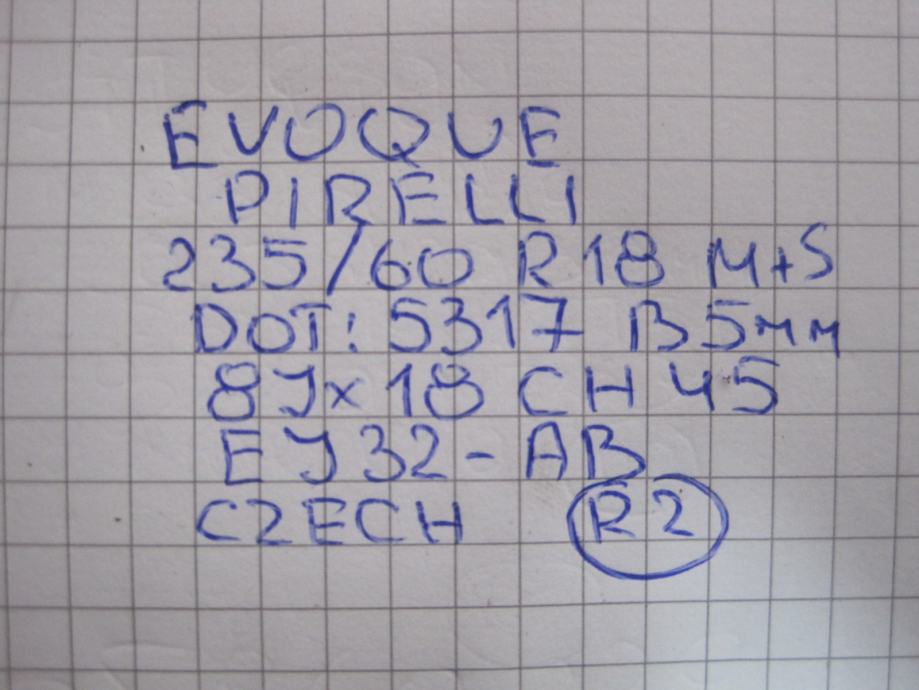 EVOQUE
PIRELLI
235/60 R18 M+S
DOT: 5317 B5mm
8Jx18 CH 45
EJ32-AB
CZECH R2